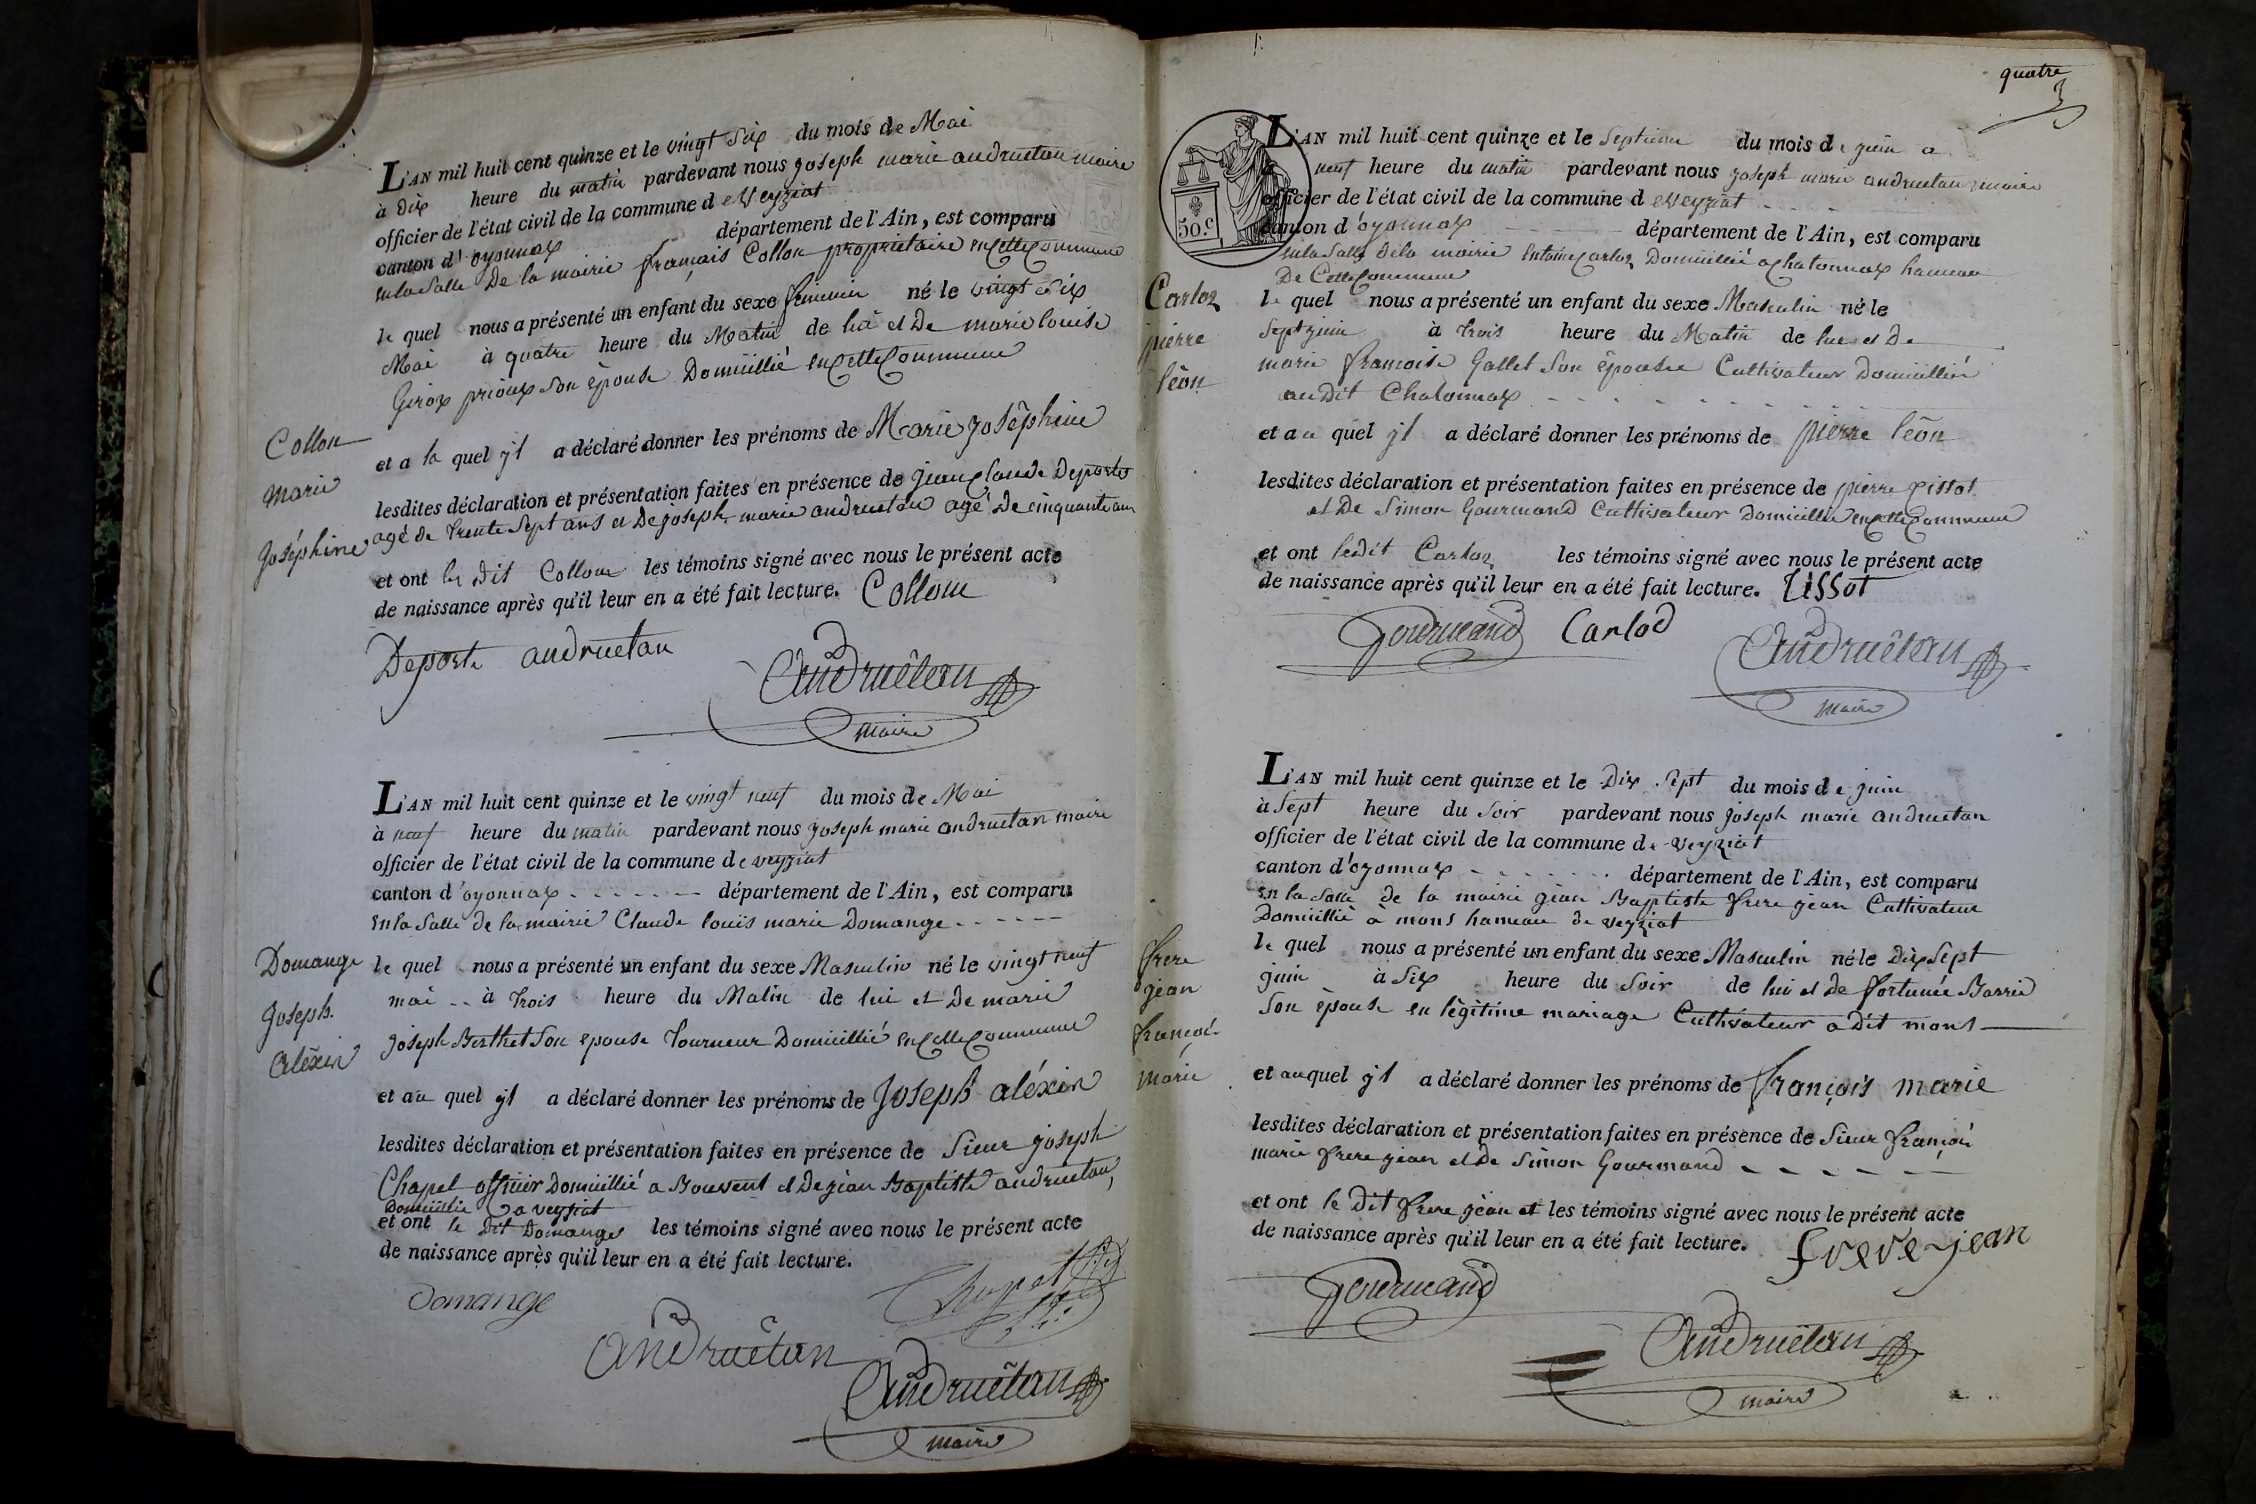 L'AN mil huit cent quinze et le vingt six du mois de Mai
à dix heure du matin pardevant nous joseph marie andruetan maire
officier de l'état civil de la commune de Veyziat
canton d'oyonnax département de l'Ain, est comparu
en la Salle De la mairie françois Collon proprietaire en Cette Commune
le quel nous a présenté un enfant du sexe feminin né le vingt Six
Mai à quatre heure du Matin de lui et De marie louise
Girox prioux son épouse Domicillié en Cette Commune
Collon
marie
joséphine
et a la quel yl a déclaré donner les prénoms de Marie josêphine
lesdites déclaration et présentation faites en présence de jean Claude Deportes
agé de trente Sept ans et De joseph marie andruetan agé De cinquante ans
et ont le dit Collon les témoins signé avec nous le présent acte
de naissance après qu'il leur en a été fait lecture. Collon
Deporte andruetan
Andruêtan
maire
L'AN mil huit cent quinze et le vingt neuf du mois de Mai
à neuf heure du matin pardevant nous joseph marie andruetan maire
officier de l'état civil de la commune de veyziat
canton d'oyonnax - - - - - - département de l'Ain, est comparu
en la Salle de la mairie Claude louis marie Domange - - - - -
Domange
joseph
aléxin
le quel nous a présenté un enfant du sexe Masculin né le vingt neuf
mai - - à trois heure du Matin de lui et De marie
joseph Berthet Son epouse tourneur Domicillié en Cette Commune
et au quel yl a déclaré donner les prénoms de Joseph aléxin
lesdites déclaration et présentation faites en présence de Sieur joseph
Chapel officier Domicillié a Bouvent et De jean Baptiste andruetan,
Domicillié a veyziat
et ont le Dit Domange les témoins signé avec nous le présent acte
de naissance après qu'il leur en a été fait lecture.
Domange
Chapel
Andruêtan
Andruêtan
maire
quatre
50.c
L'AN mil huit cent quinze et le Septieme du mois de juin a
neuf heure du matin pardevant nous joseph marie andruetan maire
officier de l'état civil de la commune de veyziat - - - -
canton d'oyonnax - - - - - département de l'Ain, est comparu
en la Salle De la mairie antoine Carloz Domicillié a Chatonnax hameau
De Cette Commune
Carloz
pierre
léon
le quel nous a présenté un enfant du sexe Masculin né le
Sept juin à trois heure du Matin de lui et De
marie francoise Gallet Son épouse Cultivateur Domicillié
au Dit Chatonnax - - - - - - - -
et au quel yl a déclaré donner les prénoms de pierre léon
lesdites déclaration et présentation faites en présence de pierre tissot
et De Simon Gourmand Cultivateur Domicillié en Cette Commune
et ont ledit Carloz les témoins signé avec nous le présent acte
de naissance après qu'il leur en a été fait lecture. Tissot
Gourmand Carlod
Andruêtan
maire
L'AN mil huit cent quinze et le Dix Sept du mois de juin
à Sept heure du Soir pardevant nous joseph marie andruetan
officier de l'état civil de la commune de veyziat
canton d'oyonnax - - - - - - département de l'Ain, est comparu
en la Salle de la mairie jean Baptiste frere jean Cultivateur
Domicillié a mons hameau de veyziat
frere
jean
françois
marie
le quel nous a présenté un enfant du sexe Masculin né le Dix Sept
juin à Six heure du Soir de lui et de fortunée Barrié
Son épouse en légitime mariage Cultivateur a Dit mons
et au quel yl a déclaré donner les prénoms de françois marie
lesdites déclaration et présentation faites en présence de Sieur françois
marie frere jean et De Simon Gourmand - - - - - -
et ont le Dit frere jean et les témoins signé avec nous le présent acte
de naissance après qu'il leur en a été fait lecture. frere jean
Gourmand
Andruêtan
maire